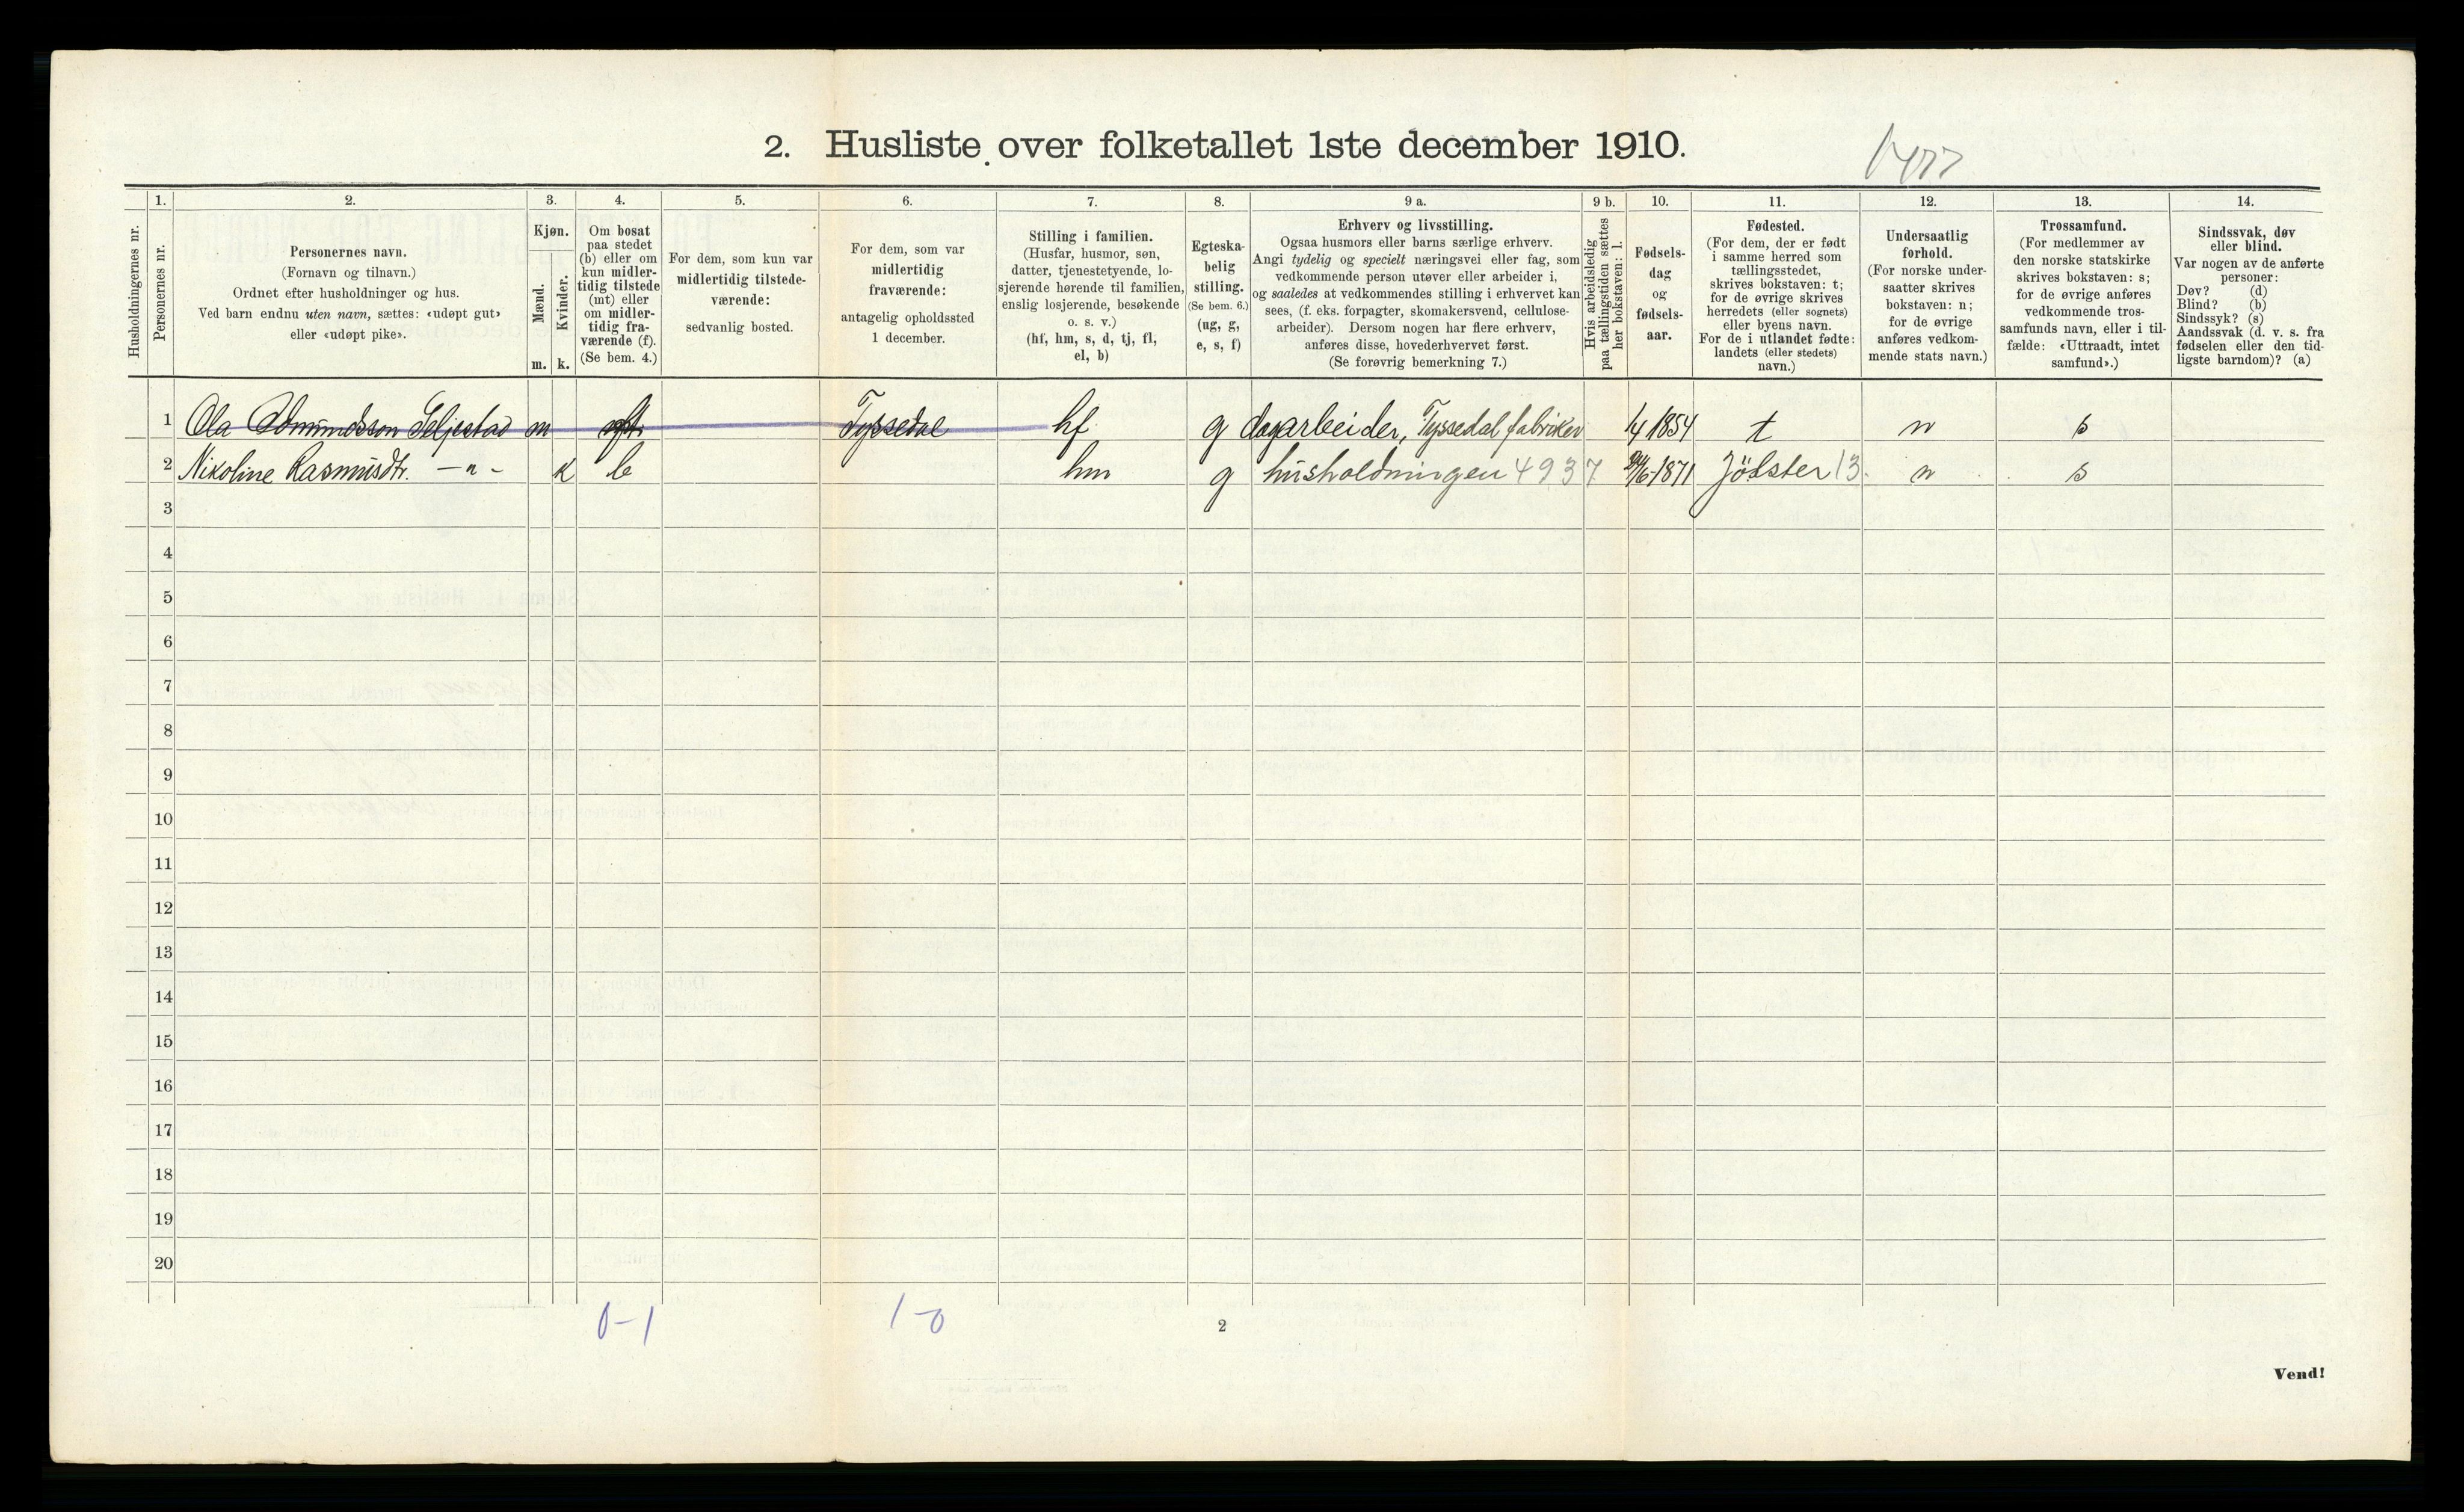 2. Husliste over folketallet 1ste december 1910.
1. 2. 3. 4. 5. 6. 7. 8. 9 a. 9 b. 10. 11. 12. 13. 14.
Husholdningernes nr.
Personernes nr.
Personernes navn.
(Fornavn og tilnavn.)
Ordnet efter husholdninger og hus.
Ved barn endnu uten navn, sættes: «udøpt gut»
eller «udøpt pike».
Kjøn.
Mænd.
Kvinder.
m. k.
Om bosat
paa stedet
(b) eller om
kun midler-
tidig tilstede
(mt) eller
om midler-
tidig fra-
værende (f).
(Se bem. 4.)
For dem, som kun var
midlertidig tilstede-
værende:
sedvanlig bosted.
For dem, som var
midlertidig
fraværende:
antagelig opholdssted
1 december.
Stilling i familien.
(Husfar, husmor, søn,
datter, tjenestetyende, lo-
sjerende hørende til familien,
enslig losjerende, besøkende
o. s. v.)
(hf, hm, s, d, tj, fl,
el, b)
Egteska-
belig
stilling.
(Se bem. 6.)
(ug, g,
e, s, f)
Erhverv og livsstilling.
Ogsaa husmors eller barns særlige erhverv.
Angi tydelig og specielt næringsvei eller fag, som
vedkommende person utøver eller arbeider i,
og saaledes at vedkommendes stilling i erhvervet kan
sees, (f. eks. forpagter, skomakersvend, cellulose-
arbeider). Dersom nogen har flere erhverv,
anføres disse, hovederhvervet først.
(Se forøvrig bemerkning 7.)
Hvis arbeidsledig
paa tællingstiden sættes
her bokstaven: l.
Fødsels-
dag
og
fødsels-
aar.
Fødested.
(For dem, der er født
i samme herred som
tællingsstedet,
skrives bokstaven: t;
for de øvrige skrives
herredets (eller sognets)
eller byens navn.
For de i utlandet fødte:
landets (eller stedets)
navn.)
Undersaatlig
forhold.
(For norske under-
saatter skrives
bokstaven: n;
for de øvrige
anføres vedkom-
mende stats navn.)
Trossamfund.
(For medlemmer av
den norske statskirke
skrives bokstaven: s;
for de øvrige anføres
vedkommende tros-
samfunds navn, eller i til-
fælde: «Uttraadt, intet
samfund».)
Sindssvak, døv
eller blind.
Var nogen av de anførte
personer:
Døv? (d)
Blind? (b)
Sindssyk? (s)
Aandssvak (d. v. s. fra
fødselen eller den tid-
ligste barndom)? (a)
1 Ola Edmundsson Seljestad m Tyssedal hf g dagarbeider, Tyssedal fabriker 1/4 1854 t n s
2 Nikoline Rasmusdtr. —"— k b hm g husholdningen 4937 /6-1871 Jölster 13. n s
3
4
5
6
7
8
9
10
11
12
13
14
15
16
17
18
19
20
0-1 1-0
2
Vend!